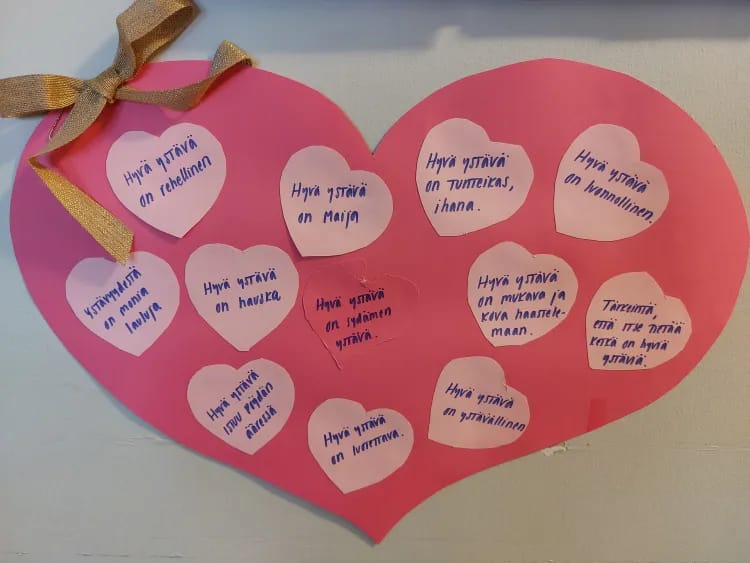 Hyvä ystävä
on rehellinen
Hyvä ystävä
on Maija
Hyvä ystävä
on tunteikas,
ihana.
Hyvä ystävä
on luonnollinen.
Ystävyydestä
on monia
lauluja
Hyvä ystävä
on hauska
Hyvä ystävä
on sydämen
ystävä.
Hyvä ystävä
on mukava ja
kova haastele-
maan.
Tärkeintä,
että itse tietää
ketkä on hyviä
ystäviä.
Hyvä ystävä
istuu pöydän
ääressä
Hyvä ystävä
on luotettava.
Hyvä ystävä
on ystävällinen